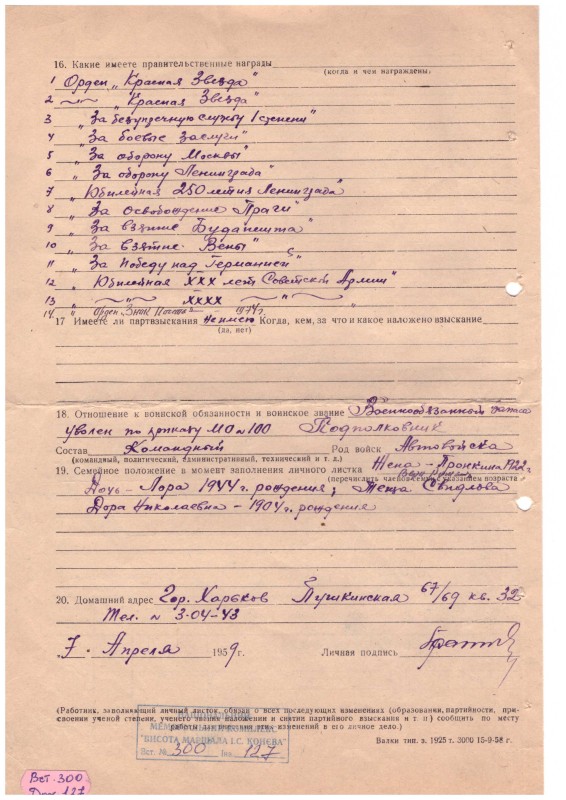 16. Какие имеете правительственные награды
(когда и чем награждены)
1 Орден „Красная Звезда"
2 —"— „Красная Звезда"
3 „За безупречную службу I степени"
4 „За боевые заслуги"
5 „За оборону Москвы"
6 „За оборону Ленинграда"
7 „Юбилейная 250 летия Ленинграда"
8 „За Освобождение Праги"
9 „За взятие Будапешта"
10 „За взятие Вены"
11 „За Победу над Германией"
12 „Юбилейная XXX лет Советской Армии"
13 —"— XXXX —"—
14. Орден „Знак — 1974г.
17 Имеете ли партвзыскания не имею Когда, кем, за что и какое наложено взыскание
(да, нет)
18. Отношение к воинской обязанности и воинское звание Военнообязанный запаса
уволен по приказу МО №100 Подполковник
Состав Командный Род войск Автовойска
(командный, политический, административный, технический и т. д.)
19. Семейное положение в момент заполнения личного листка Жена – Пронкина 1922г
(перечислить членов семьи с указанием возраста
Дочь – Лора 1944 г. рождения; Теща
Дора Николаевна – 1904г. рождения
20. Домашний адрес Гор. Харьков Пушкинская 67/69 кв. 32
Тел. № 3-04-43
7. Апреля 1959г. Личная подпись
(Работник, заполняющий личный листок, обязан о всех последующих изменениях (образовании, партийности, при-
своении ученой степени, ученого звания, наложении и снятии партийного взыскания и т. п.) сообщить по месту
работы для внесения этих изменений в его личное дело.)
МЕМОРІАЛЬНИЙ КОМПЛЕКС
"ВИСОТА МАРШАЛА І.С. КОНЄВА"
Вст. № 300 Інв. 127
Валки тип. з. 1925 т. 3000 15-9-58 г.
Вст. 300
127